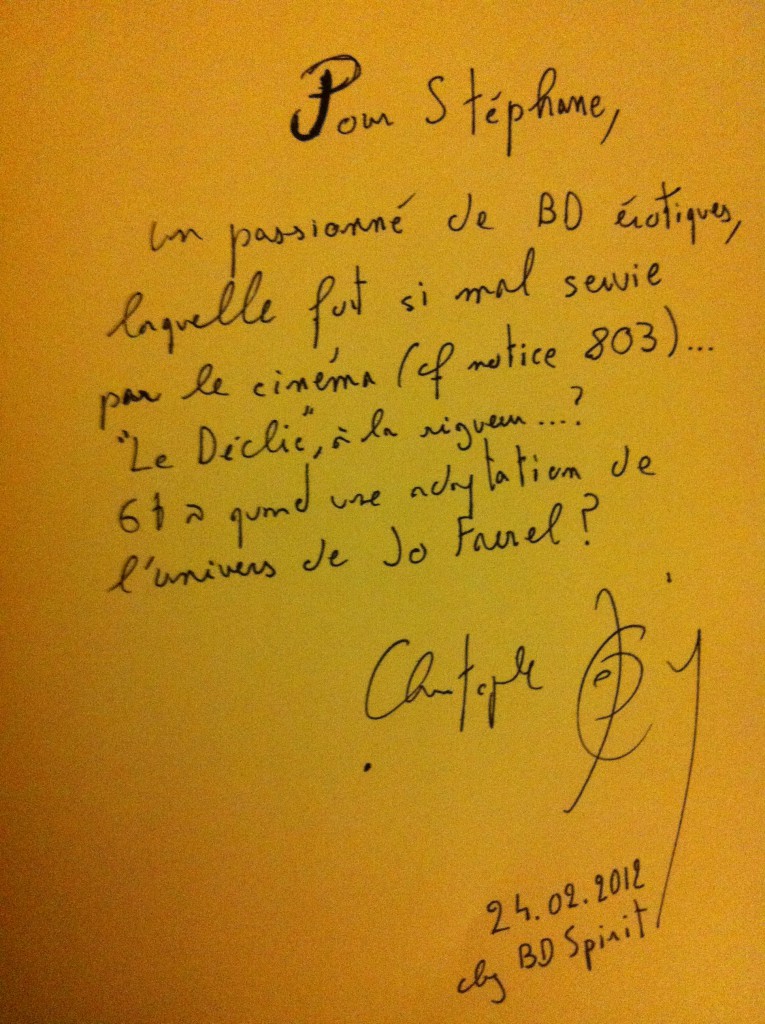 Pour Stéphane,
un passionné de BD érotiques,
laquelle fut si mal servie
par le cinéma (cf notice 803)...
"Le Déclic", à la rigueur...?
Et à quand une adaptation de
l'univers de Jo Farrel ?
Christophe
24.02.2012
chez BD Spirit